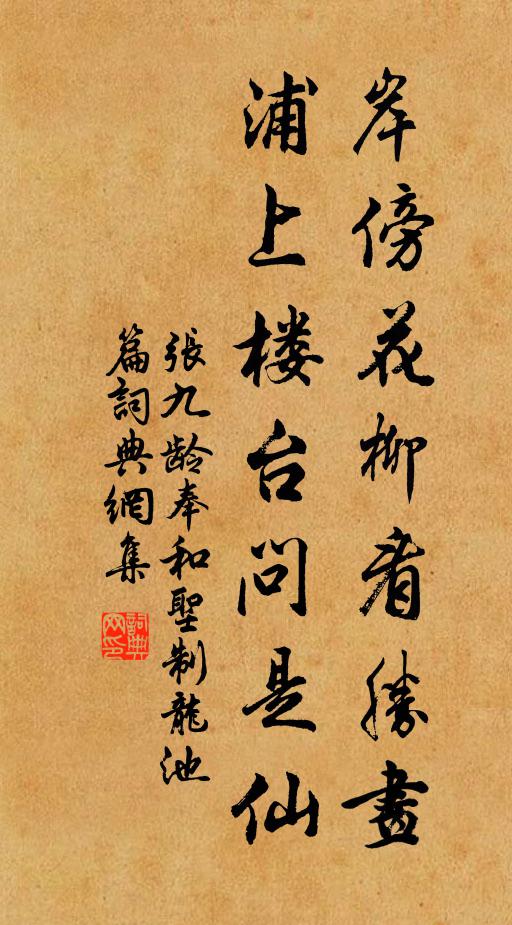 岸傍花柳看勝畫
浦上楼台問是仙
張九龄奉和聖制龍池
篇詞典網集
詞典
网印